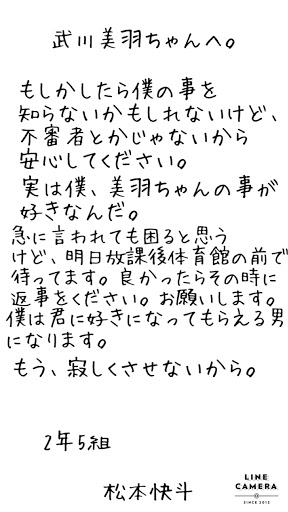 武川美羽ちゃんへ。
もしかしたら僕の事を
知らないかもしれないけど、
不審者とかじゃないから
安心してください。
実は僕、美羽ちゃんの事が
好きなんだ。
急に言われても困ると思う
けど、明日放課後体育館の前で
待ってます。良かったらその時に
返事をください。お願いします。
僕は君に好きになってもらえる男
になります。
もう、寂しくさせないから。
2年5組
松本快斗
LINE
CAMERA
SINCE 2012